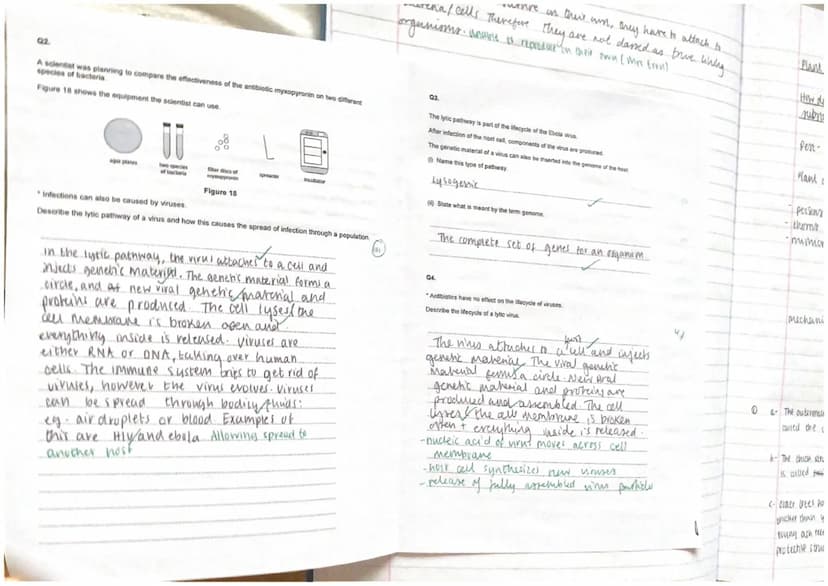 bacteria/cells. Therefore they are not classed as true living
organisms. unable to reproduce on their own (Mrs Eron)
Q2.
A scientist was planning to compare the effectiveness of the antibiotic myxopyronin on two different
species of bacteria.
Figure 18 shows the equipment the scientist can use.
agar plates
two species
of bacteria
filter discs of
myxopyronin
spreader
incubator
Figure 18
* Infections can also be caused by viruses.
Describe the lytic pathway of a virus and how this causes the spread of infection through a population.
In the lytic pathway, the virus attaches to a cell and
injects genetic material. The genetic material forms a
circle, and new viral genetic material and
proteins are produced. The cell lyses/the
cell membrane is broken open and
everything inside is released. Viruses are
either RNA or DNA, taking over human
cells. The immune system tries to get rid of
viruses, however the virus evolves. Viruses
can be spread through bodily fluids:
eg. air droplets or blood Examples of
this are HIV and ebola Allowing spread to
another host
Q3.
The lytic pathway is part of the lifecycle of the Ebola virus.
After infection of the host cell, components of the virus are produced.
The genetic material of a virus can also be inserted into the genome of the host.
(i) Name this type of pathway.
Lysogenic
(ii) State what is meant by the term genome.
The complete set of genes for an organism
Q4.
* Antibiotics have no effect on the lifecycle of viruses.
Describe the lifecycle of a lytic virus.
host
The virus attaches to a cell and injects
genetic material. The viral genetic
material forms a circle. New viral
genetic material and proteins are
produced and assembled. The cell
lyses/the cell membrane is broken
open + everything inside is released.
-nucleic acid of virus moves across cell
membrane
-host cell synthesizes new viruses
-release of fully assembled virus particle
Plant
Pen-
Plant
mechani
a- The
b- The
is called
c-